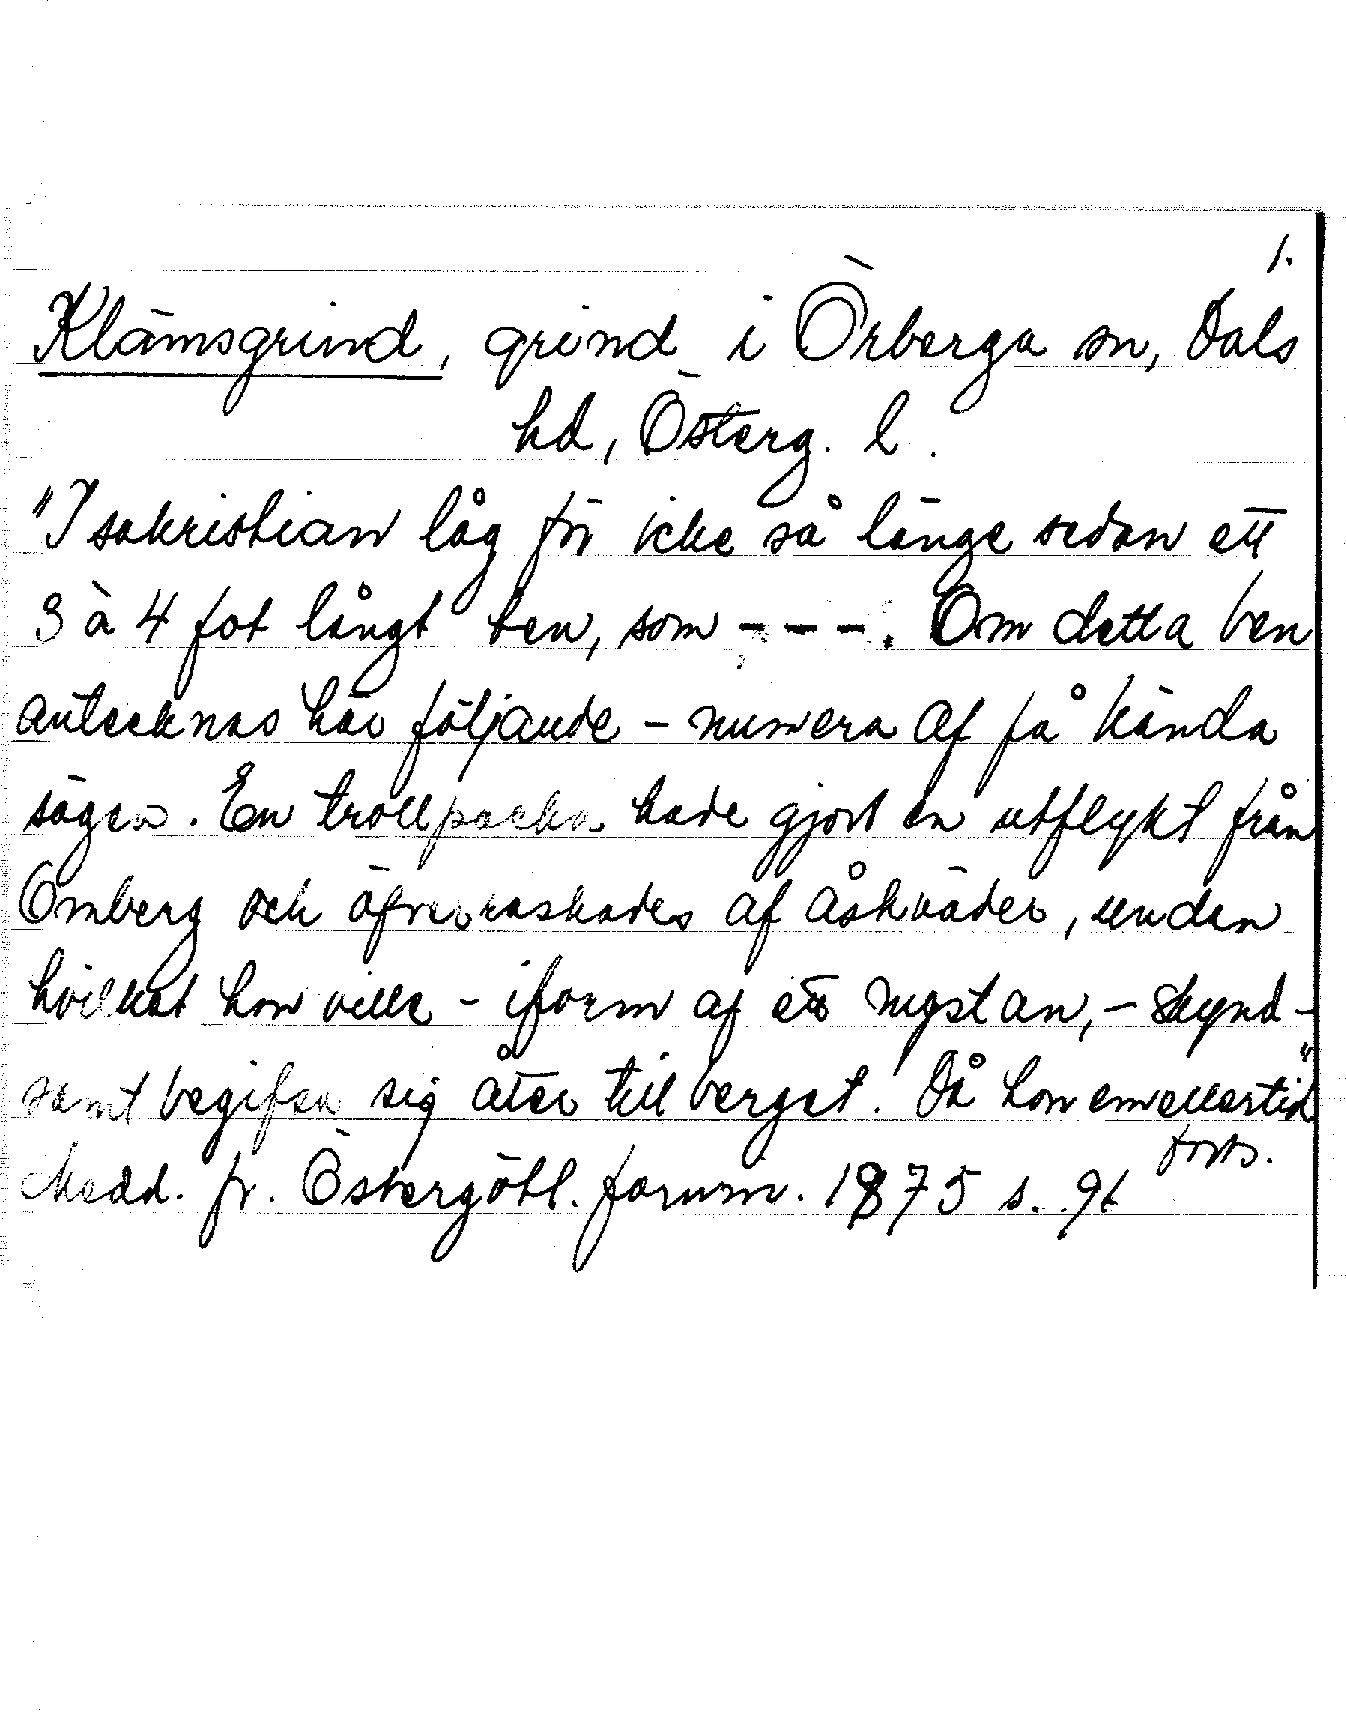 1.
Klämsgrind, grind i Örberga sn, Dals
hd, Österg. l.
"I sakristian låg för icke så länge sedan ett
3 à 4 fot långt ben, som - - -. Om detta ben
antecknas här följande - numera af få kända
sägen. En trollpacka hade gjort en utflykt från
Omberg och öfverraskades af åskväder, undan
hvilket hon ville - i form af ett nystan, - skynd-
samt begifva sig åter till berget. Då hon emellertid"
forts.
Medd. fr. Östergötl. fornm. 1875 s. 91